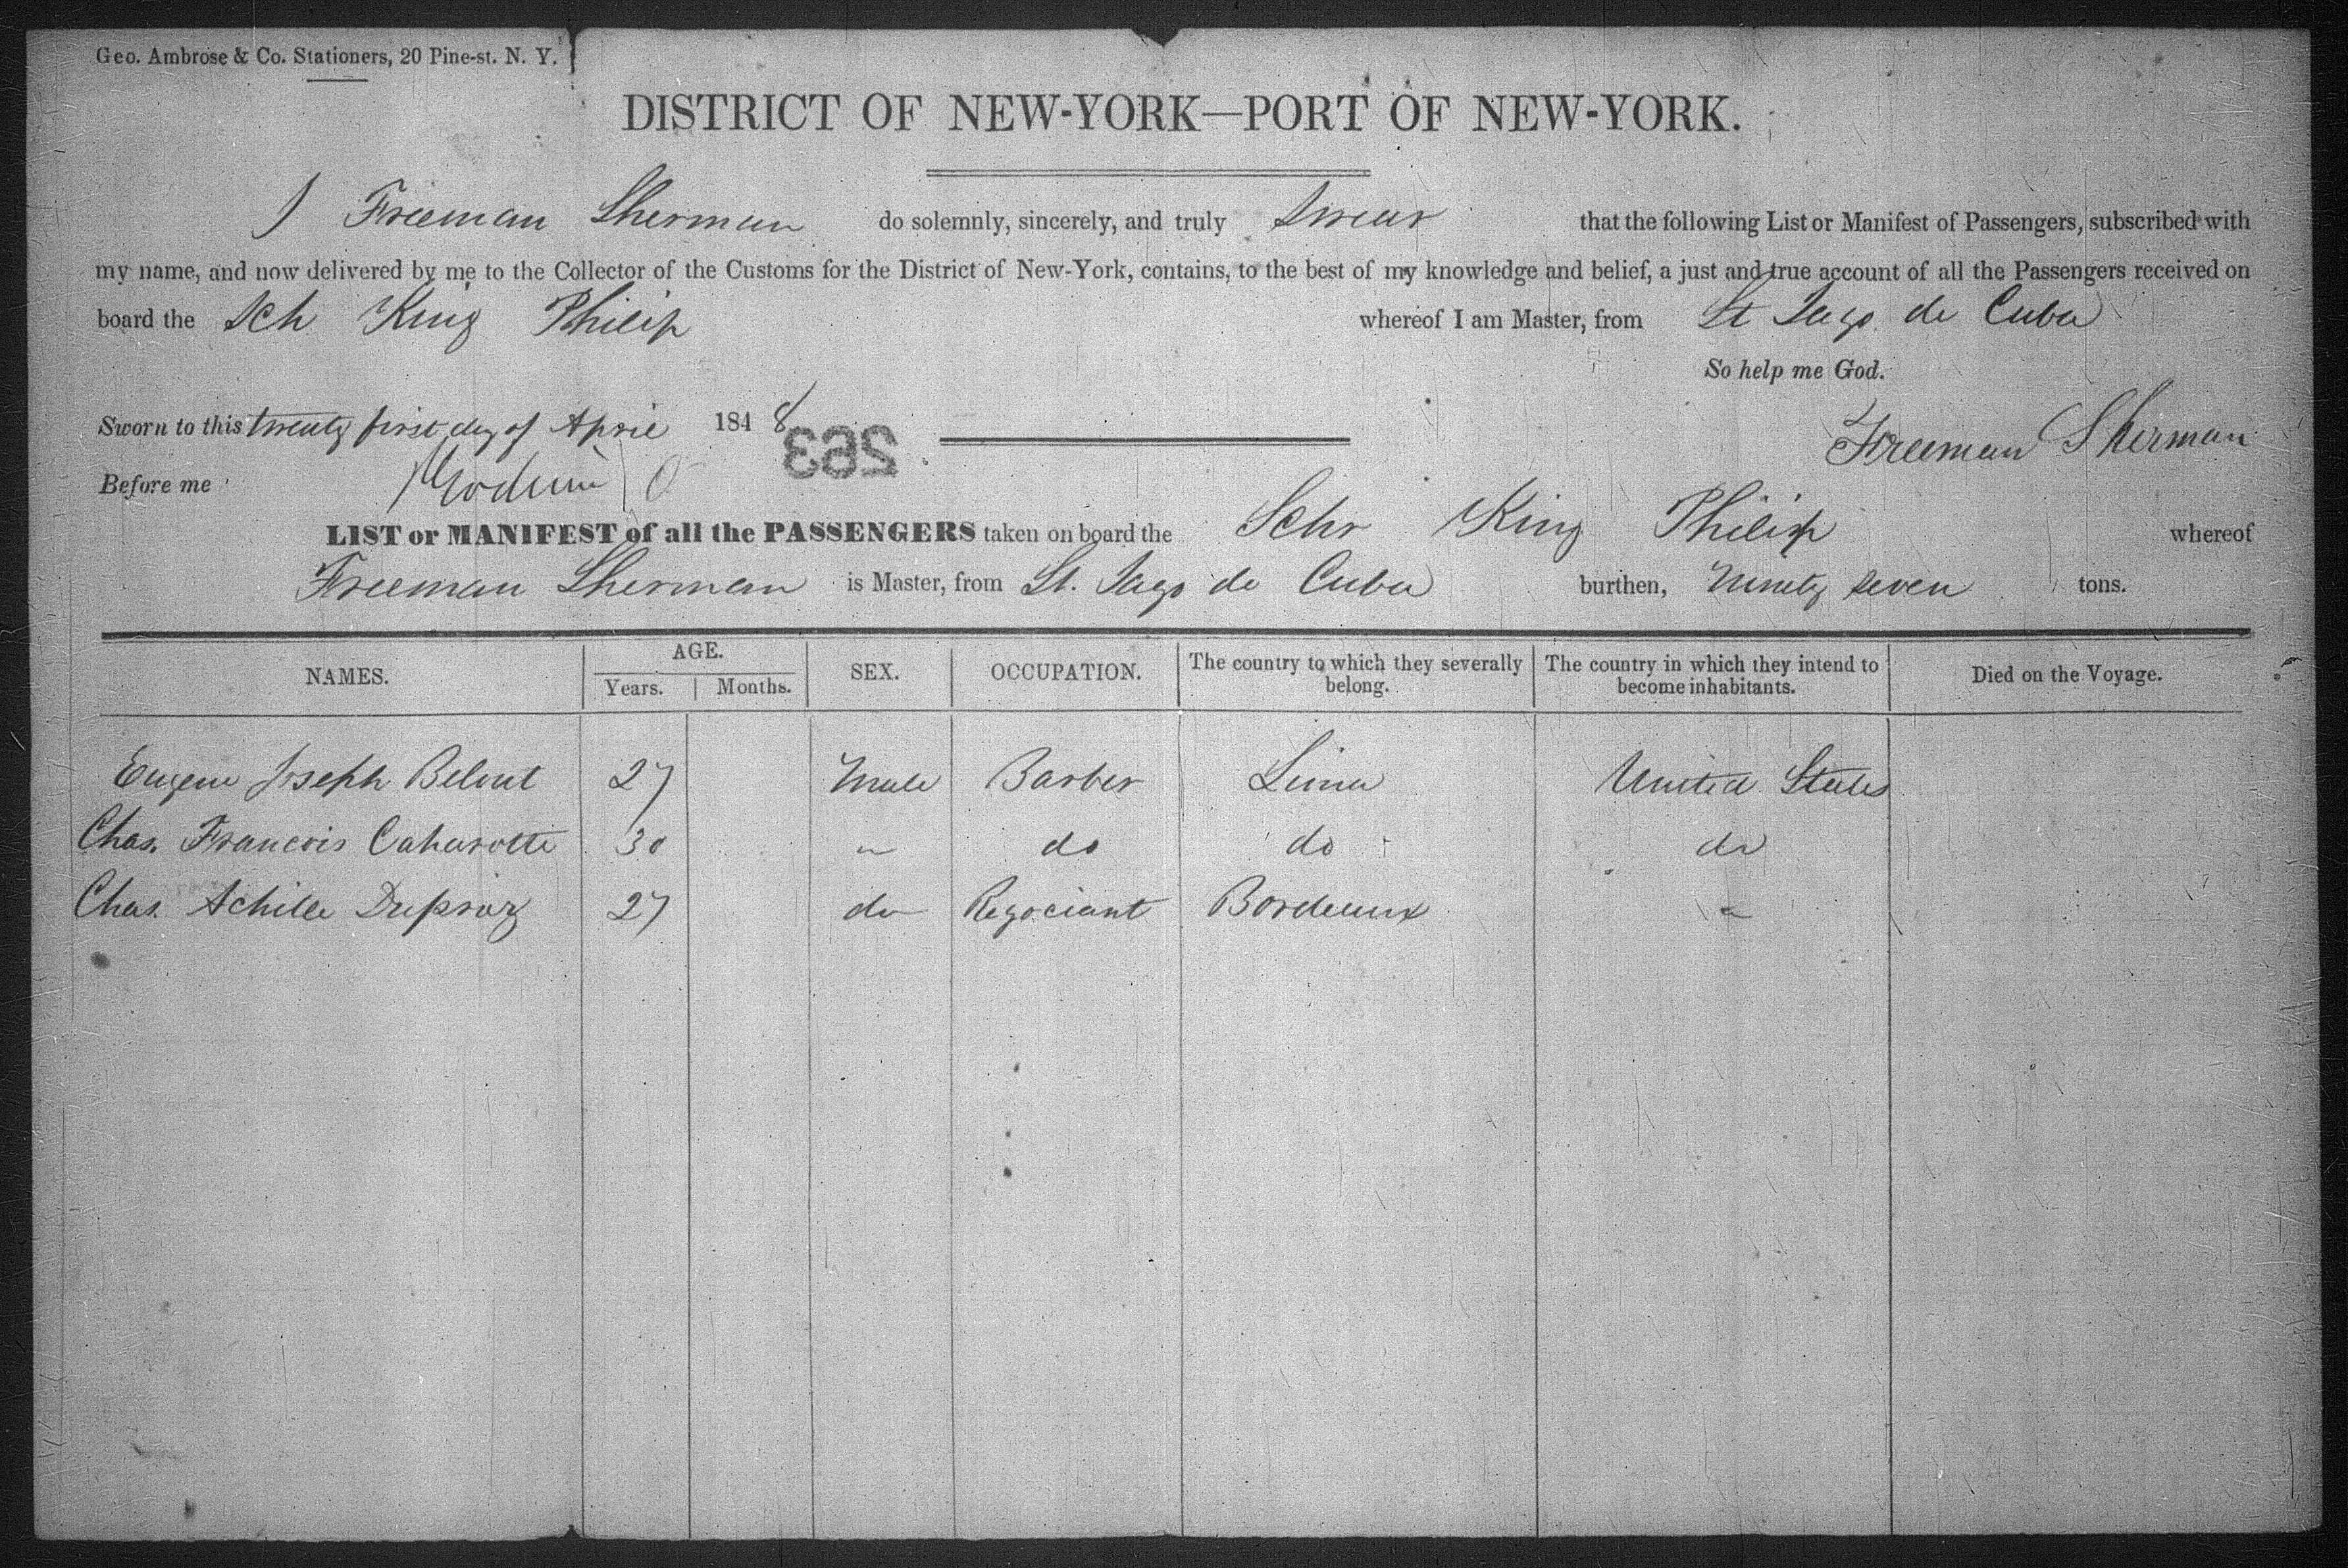 Geo. Ambrose & Co. Stationers, 20 Pine-st. N. Y.
DISTRICT OF NEW-YORK—PORT OF NEW-YORK.
I Freeman Sherman do solemnly, sincerely, and truly Swear that the following List or Manifest of Passengers, subscribed with
my name, and now delivered by me to the Collector of the Customs for the District of New-York, contains, to the best of my knowledge and belief, a just and true account of all the Passengers received on
board the Sch King Philip whereof I am Master, from St Jago de Cuba
So help me God.
Sworn to this twenty first day of April 1848
263
Freeman Sherman
Before me
LIST or MANIFEST of all the PASSENGERS taken on board the Schr King Philip whereof
Freeman Sherman is Master, from St. Jago de Cuba burthen, Ninety seven tons.
NAMES. AGE. Years. Months. SEX. OCCUPATION. The country to which they severally belong. The country in which they intend to become inhabitants. Died on the Voyage.
Eugene Joseph 27 Male Barber Lima United States
Chas. Francois 30 " do do do
Chas. Achille 27 do Regociant Bordeaux "